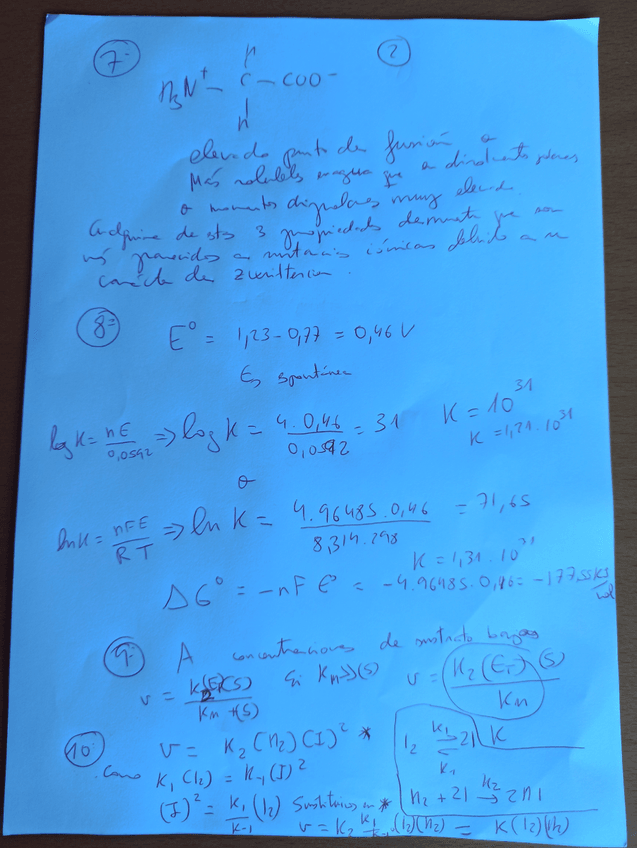 7- 2
H
H3N+ - C - COO-
H
elevado punto de fusión o
Más solubles en agua que en disolventes polares
o momentos dipolares muy elevado
Cualquiera de estos 3 propiedades demuestra que son
más parecidos a materiales iónicos debido a su
carácter de zwitterion.
8= E° = 1,23 - 0,77 = 0,46 V
Es espontánea
log K = nE/0,0592 => log K = 4·0,46/0,0592 = 31 K = 10^31
K = 1,21·10^31
o
ln K = nFE/RT => ln K = 4·96485·0,46/8,314·298 = 71,65
K = 1,31·10^31
ΔG° = -nF E° = -4·96485·0,46 = -177,55 KJ/mol
9- A concentraciones de sustrato bajas
v = K2(E)(S)/Km+(S) Si Km>>(S) v = K2(ET)(S)/Km
10- v = K2(H2)(I)^2 * I2 K1 ⇌ 2I K-1 K
Como K1(I2) = K-1(I)^2
H2 + 2I K2 → 2HI
(I)^2 = K1/K-1 (I2) Sustituimos en *
v = K2 K1/K-1 (I2)(H2) = K(I2)(H2)